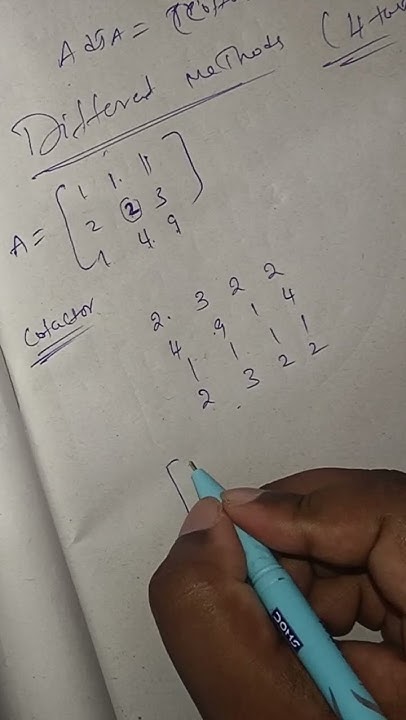 A adj A =
Different Methods (4
A = [ 1 1 1
2 2 3
1 4 9 ]
Cofactor
2. 3 2 2
4 9 1 4
1 1 1 1
2 3 2 2
[
DOMS